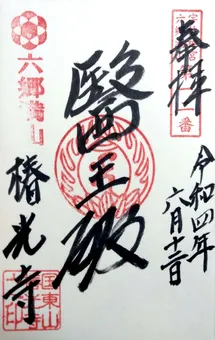 奉拝
令和四年
六月十二日
醫王殿
六郷満山
椿光寺